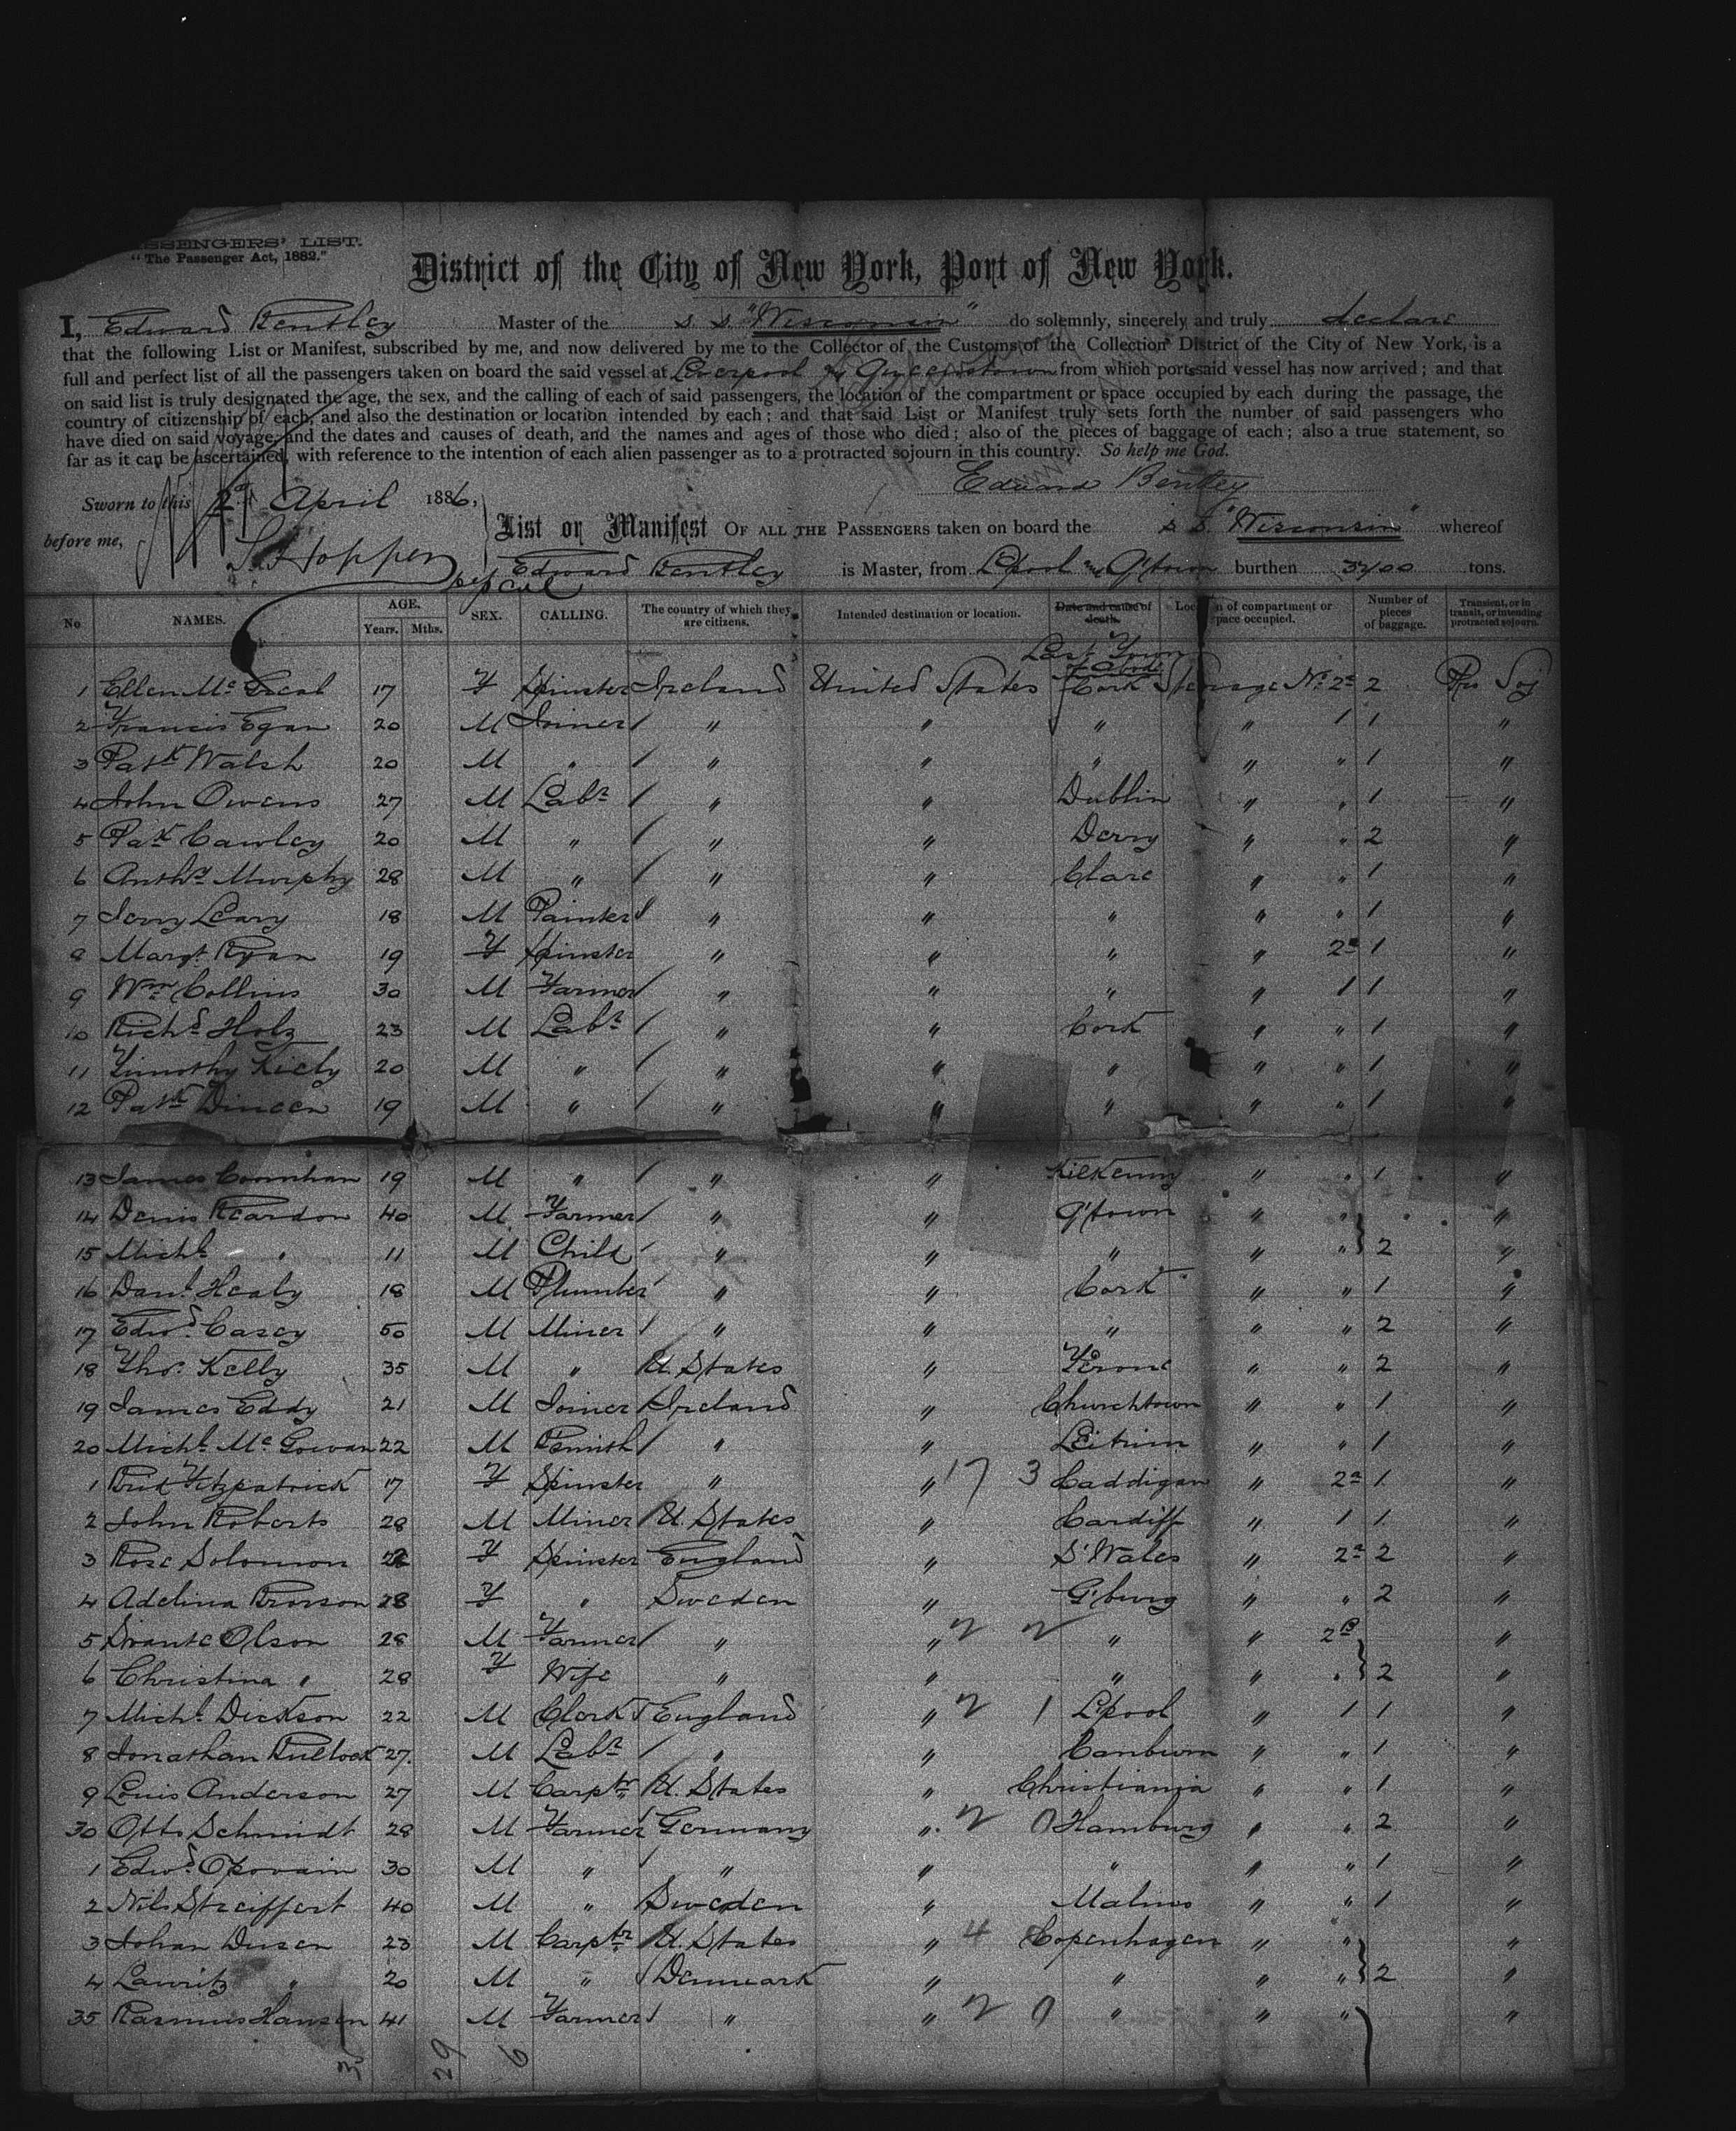 SSENGERS' LIST.
"The Passenger Act, 1882."
District of the City of New York, Port of New York.
I, Edward Bentley Master of the S. S. "Wisconsin" do solemnly, sincerely and truly declare
that the following List or Manifest, subscribed by me, and now delivered by me to the Collector of the Customs of the Collection District of the City of New York, is a
full and perfect list of all the passengers taken on board the said vessel at Liverpool & Queenstown from which port said vessel has now arrived; and that
on said list is truly designated the age, the sex, and the calling of each of said passengers, the location of the compartment or space occupied by each during the passage, the
country of citizenship of each, and also the destination or location intended by each; and that said List or Manifest truly sets forth the number of said passengers who
have died on said voyage, and the dates and causes of death, and the names and ages of those who died; also of the pieces of baggage of each; also a true statement, so
far as it can be ascertained, with reference to the intention of each alien passenger as to a protracted sojourn in this country. So help me God.
Edward Bentley
Sworn to this 2d April 1886,
before me,
List or Manifest OF ALL THE PASSENGERS taken on board the S S. "Wisconsin" whereof
Edward Bentley is Master, from L'pool and Q'town burthen 3700 tons.
No NAMES. AGE. Years. Mths. SEX. CALLING. The country of which they are citizens. Intended destination or location. Date and cause of death. Location of compartment or space occupied. Number of pieces of baggage. Transient, or in transit, or intending protracted sojourn.
Last Town of abode
1 Ellen Mc Greal 17 F Spinster Ireland United States Cork Steerage No 2a 2 Pro Soj
2 Francis Egan 20 M Joiner / " " " " 1 1 "
3 Patk Walsh 20 M " / " " " " " 1 "
4 John Owens 27 M Labr / " " Dublin " " 1 "
5 Patk Cawley 20 M " / " " Derry " " 2 "
6 Anthy Murphy 28 M " / " " Clare " " 1 "
7 Jerry Leary 18 M Painter / " " " " " 1 "
8 Margt Ryan 19 F Spinster " " " " 2a 1 "
9 Wm Collins 30 M Farmer / " " " " 1 1 "
10 Richd Holz 23 M Labr / " " Cork " " 1 "
11 Timothy Kiely 20 M " / " " " " " 1 "
12 Patk Dineen 19 M " / " " " " " 1 "
13 James 19 M " / " " Kilkenny " " 1 "
14 Denis Reardon 40 M Farmer / " " Q'town " " "
15 Michl " 11 M Child / " " " " " 2 "
16 Danl Healy 18 M Plumber / " " Cork " " 1 "
17 Edwd Casey 50 M Miner / " " " " " 2 "
18 Thos Kelly 35 M " U. States " Tirone " " 2 "
19 James Eddy 21 M Joiner / Ireland " Churchtown " " 1 "
20 Michl Mc Gowan 22 M Bsmith / " " Leitrim " " 1 "
1 Brid Fitzpatrick 17 F Spinster " " 17 3 Caddigan " 2a 1 "
2 John Roberts 28 M Miner / U. States " Cardiff " 1 1 "
3 Rose Solomon 22 F Spinster England " S' Wales " 2a 2 "
4 Adelina 28 F " Sweden " G'burg " " 2 "
5 Svante Olson 28 M Farmer / " " 2 2 " " 2B "
6 Christina " 28 F Wife " " " " " 2 "
7 Michl Dickson 22 M Clerk / England " 2 1 L'pool " 1 1 "
8 Jonathan Bullock 27 M Labr / " " Camburn " " 1 "
9 Louis Anderson 27 M Carptr / U. States " Christiania " " 1 "
30 Otto Schmidt 28 M Farmer / Germany " 2 0 Hamburg " " 2 "
1 Edwd 30 M " / " " " " " 1 "
2 Nils Streiffert 40 M " Sweden " Malmo " " 1 "
3 Johan Dusen 23 M Carptr / U. States " 4 Copenhagen " " "
4 Lauritz " 20 M " / Denmark " " " " 2 "
35 Rasmus Hansen 41 M Farmer / " " 2 0 " " " "
29 6